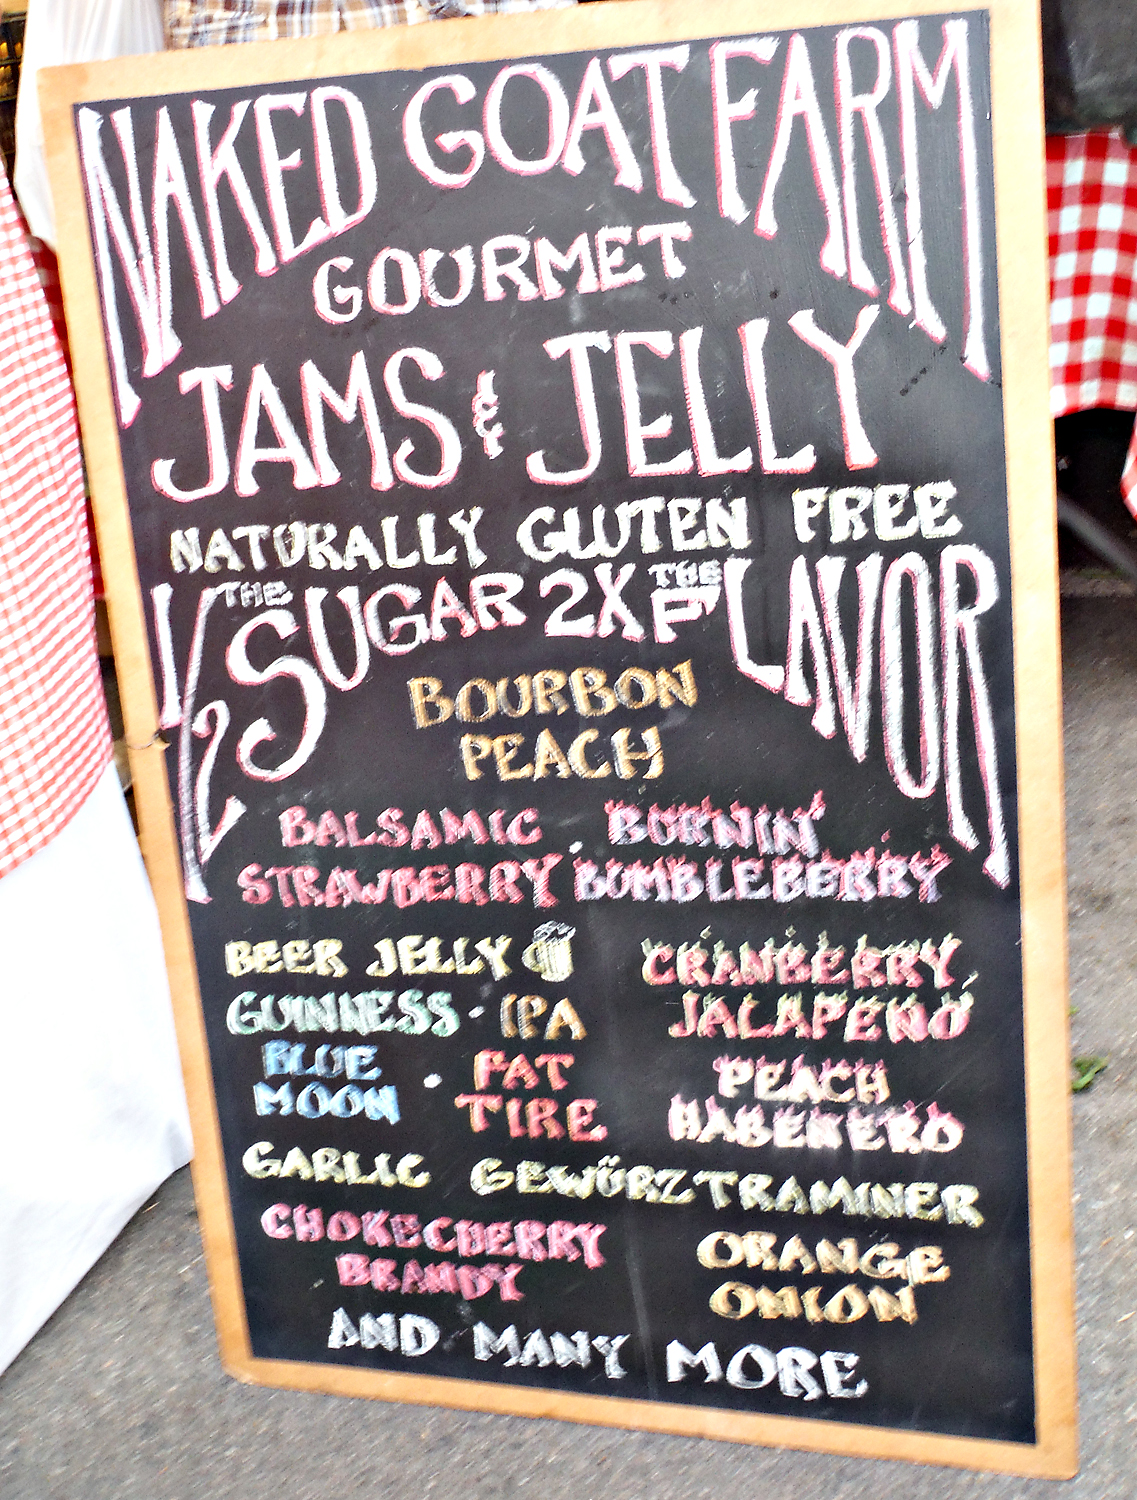 NAKED GOAT FARM
GOURMET
JAMS & JELLY
NATURALLY GLUTEN FREE
1/2 THE SUGAR 2X THE FLAVOR
BOURBON
PEACH
BALSAMIC
STRAWBERRY
BURNIN'
BUMBLEBERRY
BEER JELLY
GUINNESS · IPA
BLUE
MOON
· FAT
TIRE
CRANBERRY
JALAPEÑO
PEACH
HABENERO
GARLIC GEWÜRZTRAMINER
CHOKECHERRY
BRANDY
ORANGE
ONION
AND MANY MORE